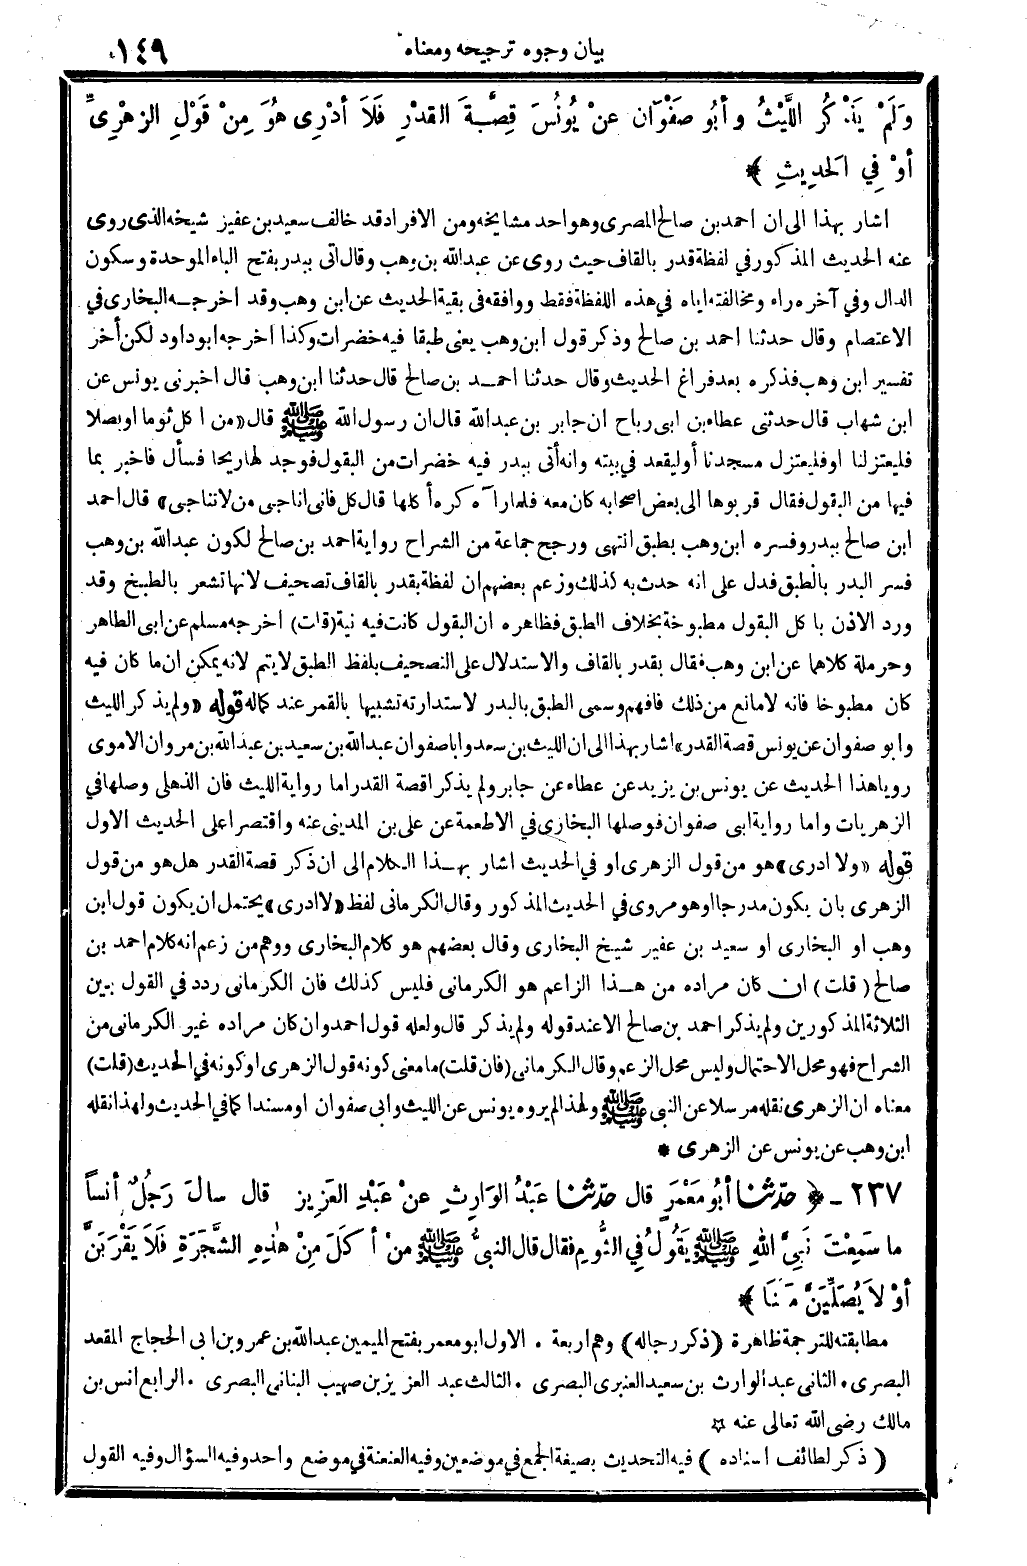 بيان وجوه ترجيحه ومعناه
١٤٩
وَلَمْ يَذْكُرِ اللَّيْثُ وأبُو صَفْوَان عنْ يُونُسَ قِصَّةَ القدْرِ فَلَا أدْرِى هُوَ مِنْ قَوْلِ الزهْرِىِّ
أوْ فِي الحَدِيثِ ﴾*
اشار بهذا الى ان احمد بن صالح المصرى وهو احد مشايخه ومن الافراد قد خالف سعيد بن عفيز شيخه الذى روى
عنه الحديث المذكور في لفظة قدر بالقاف حيث روى عن عبد الله بن وهب وقال اتى ببدر بفتح الباء الموحدة وسكون
الدال وفى آخره راء ومخالفته اياه في هذه اللفظة فقط ووافقه في بقية الحديث عن ابن وهب وقد اخرجه البخارى في
الاعتصام وقال حدثنا احمد بن صالح وذكر قول ابن وهب يعنى طبقا فيه خضرات وكذا اخرجه ابو داود لكن أخر
تفسير ابن وهب فذكره بعد فراغ الحديث وقال حدثنا احمد بن صالح قال حدثنا ابن وهب قال اخبرنى يونس عن
ابن شهاب قال حدثنى عطاء بن ابى رباح ان جابر بن عبد الله قال ان رسول الله ﷺ قال «من اكل ثوما او بصلا
فليعتزلنا او فليعتزل مسجدنا أو ليقعد في بيته وانه أتى ببدر فيه خضرات من البقول فوجد لها ريحا فسأل فاخبر بما
فيها من البقول فقال قربوها الى بعض اصحابه كان معه فلما رآه كره أكلها قال كل فانى اناجى من لا تناجى» قال احمد
ابن صالح ببدر وفسره ابن وهب بطبق انتهى ورجح جماعة من الشراح رواية احمد بن صالح لكون عبد الله بن وهب
فسر البدر بالطبق فدل على انه حدث به كذلك وزعم بعضهم ان لفظة بقدر بالقاف تصحيف لانها تشعر بالطبخ وقد
ورد الاذن باكل البقول مطبوخة بخلاف الطبق فظاهره ان البقول كانت فيه نية (قات) اخرجه مسلم عن ابى الطاهر
وحرملة كلاهما عن ابن وهب فقال بقدر بالقاف والاستدلال على التصحيف بلفظ الطبق لا يتم لانه يمكن ان ما كان فيه
كان مطبوخا فانه لا مانع من ذلك فافهم وسمى الطبق بالبدر لاستدارته تشبيها بالقمر عند كماله قوله «ولم يذكر الليث
وابو صفوان عن يونس قصة القدر» اشار بهذا الى ان الليث بن سعد وابا صفوان عبد الله بن سعيد بن عبد الله بن مروان الاموى
رويا هذا الحديث عن يونس بن يزيد عن عطاء عن جابر ولم يذكرا قصة القدر اما رواية الليث فان الذهلى وصلها في
الزهريات واما رواية ابى صفوان فوصلها البخارى في الاطعمة عن على بن المدينى عنه واقتصرا على الحديث الاول
قوله «ولا ادرى» هو من قول الزهرى او في الحديث اشار بهذا الكلام الى ان ذكر قصة القدر هل هو من قول
الزهرى بان يكون مدرجا او هو مروى في الحديث المذكور وقال الكرمانى لفظ «لا ادرى» يحتمل ان يكون قول ابن
وهب او البخارى او سعيد بن عفير شيخ البخارى وقال بعضهم هو كلام البخارى ووهم من زعم انه كلام احمد بن
صالح (قلت) ان كان مراده من هذا الزاعم هو الكرمانى فليس كذلك فان الكرمانى ردد في القول بين
الثلاثة المذكورين ولم يذكر احمد بن صالح الا عند قوله ولم يذكر قال ولعله قول احمد وان كان مراده غير الكرمانى من
الشراح فهو محل الاحتمال وليس محل الزعم وقال الكرمانى (فان قلت) ما معنى كونه قول الزهرى او كونه في الحديث (قلت)
معناه ان الزهرى نقله مرسلا عن النبى ﷺ ولهذا لم يروه يونس عن الليث وابى صفوان او مسندا كما في الحديث ولهذا نقله
ابن وهب عن يونس عن الزهرى *
٢٣٧ ـ ﴿ حدّثنا أبُو مَعْمَرٍ قال حدّثنا عَبْدُ الوَارِثِ عنْ عَبْدِ العَزِيزِ قال سالَ رَجُلٌ أنساً
ما سَمِعْتَ نَبِيَّ اللهِ ﷺ يَقُولُ فِي الثُّومِ فقال قال النبىُّ ﷺ منْ أكَلَ مِنْ هٰذِهِ الشَّجَرَةِ فَلَا يَقْرَبَنَّ
أوْ لاَ يُصَلِّيَنَّ مَعَنَا ﴾*
مطابقته للترجمة ظاهرة (ذكر رجاله) وهم اربعة . الاول ابو معمر بفتح الميمين عبد الله بن عمرو بن ابى الحجاج المقعد
البصرى . الثانى عبد الوارث بن سعيد العنبرى البصرى . الثالث عبد العزيز بن صهيب البنانى البصرى . الرابع انس بن
مالك رضى الله تعالى عنه ☆
( ذكر لطائف اسناده ) فيه التحديث بصيغة الجمع في موضعين وفيه العنعنة في موضع واحد وفيه السؤال وفيه القول